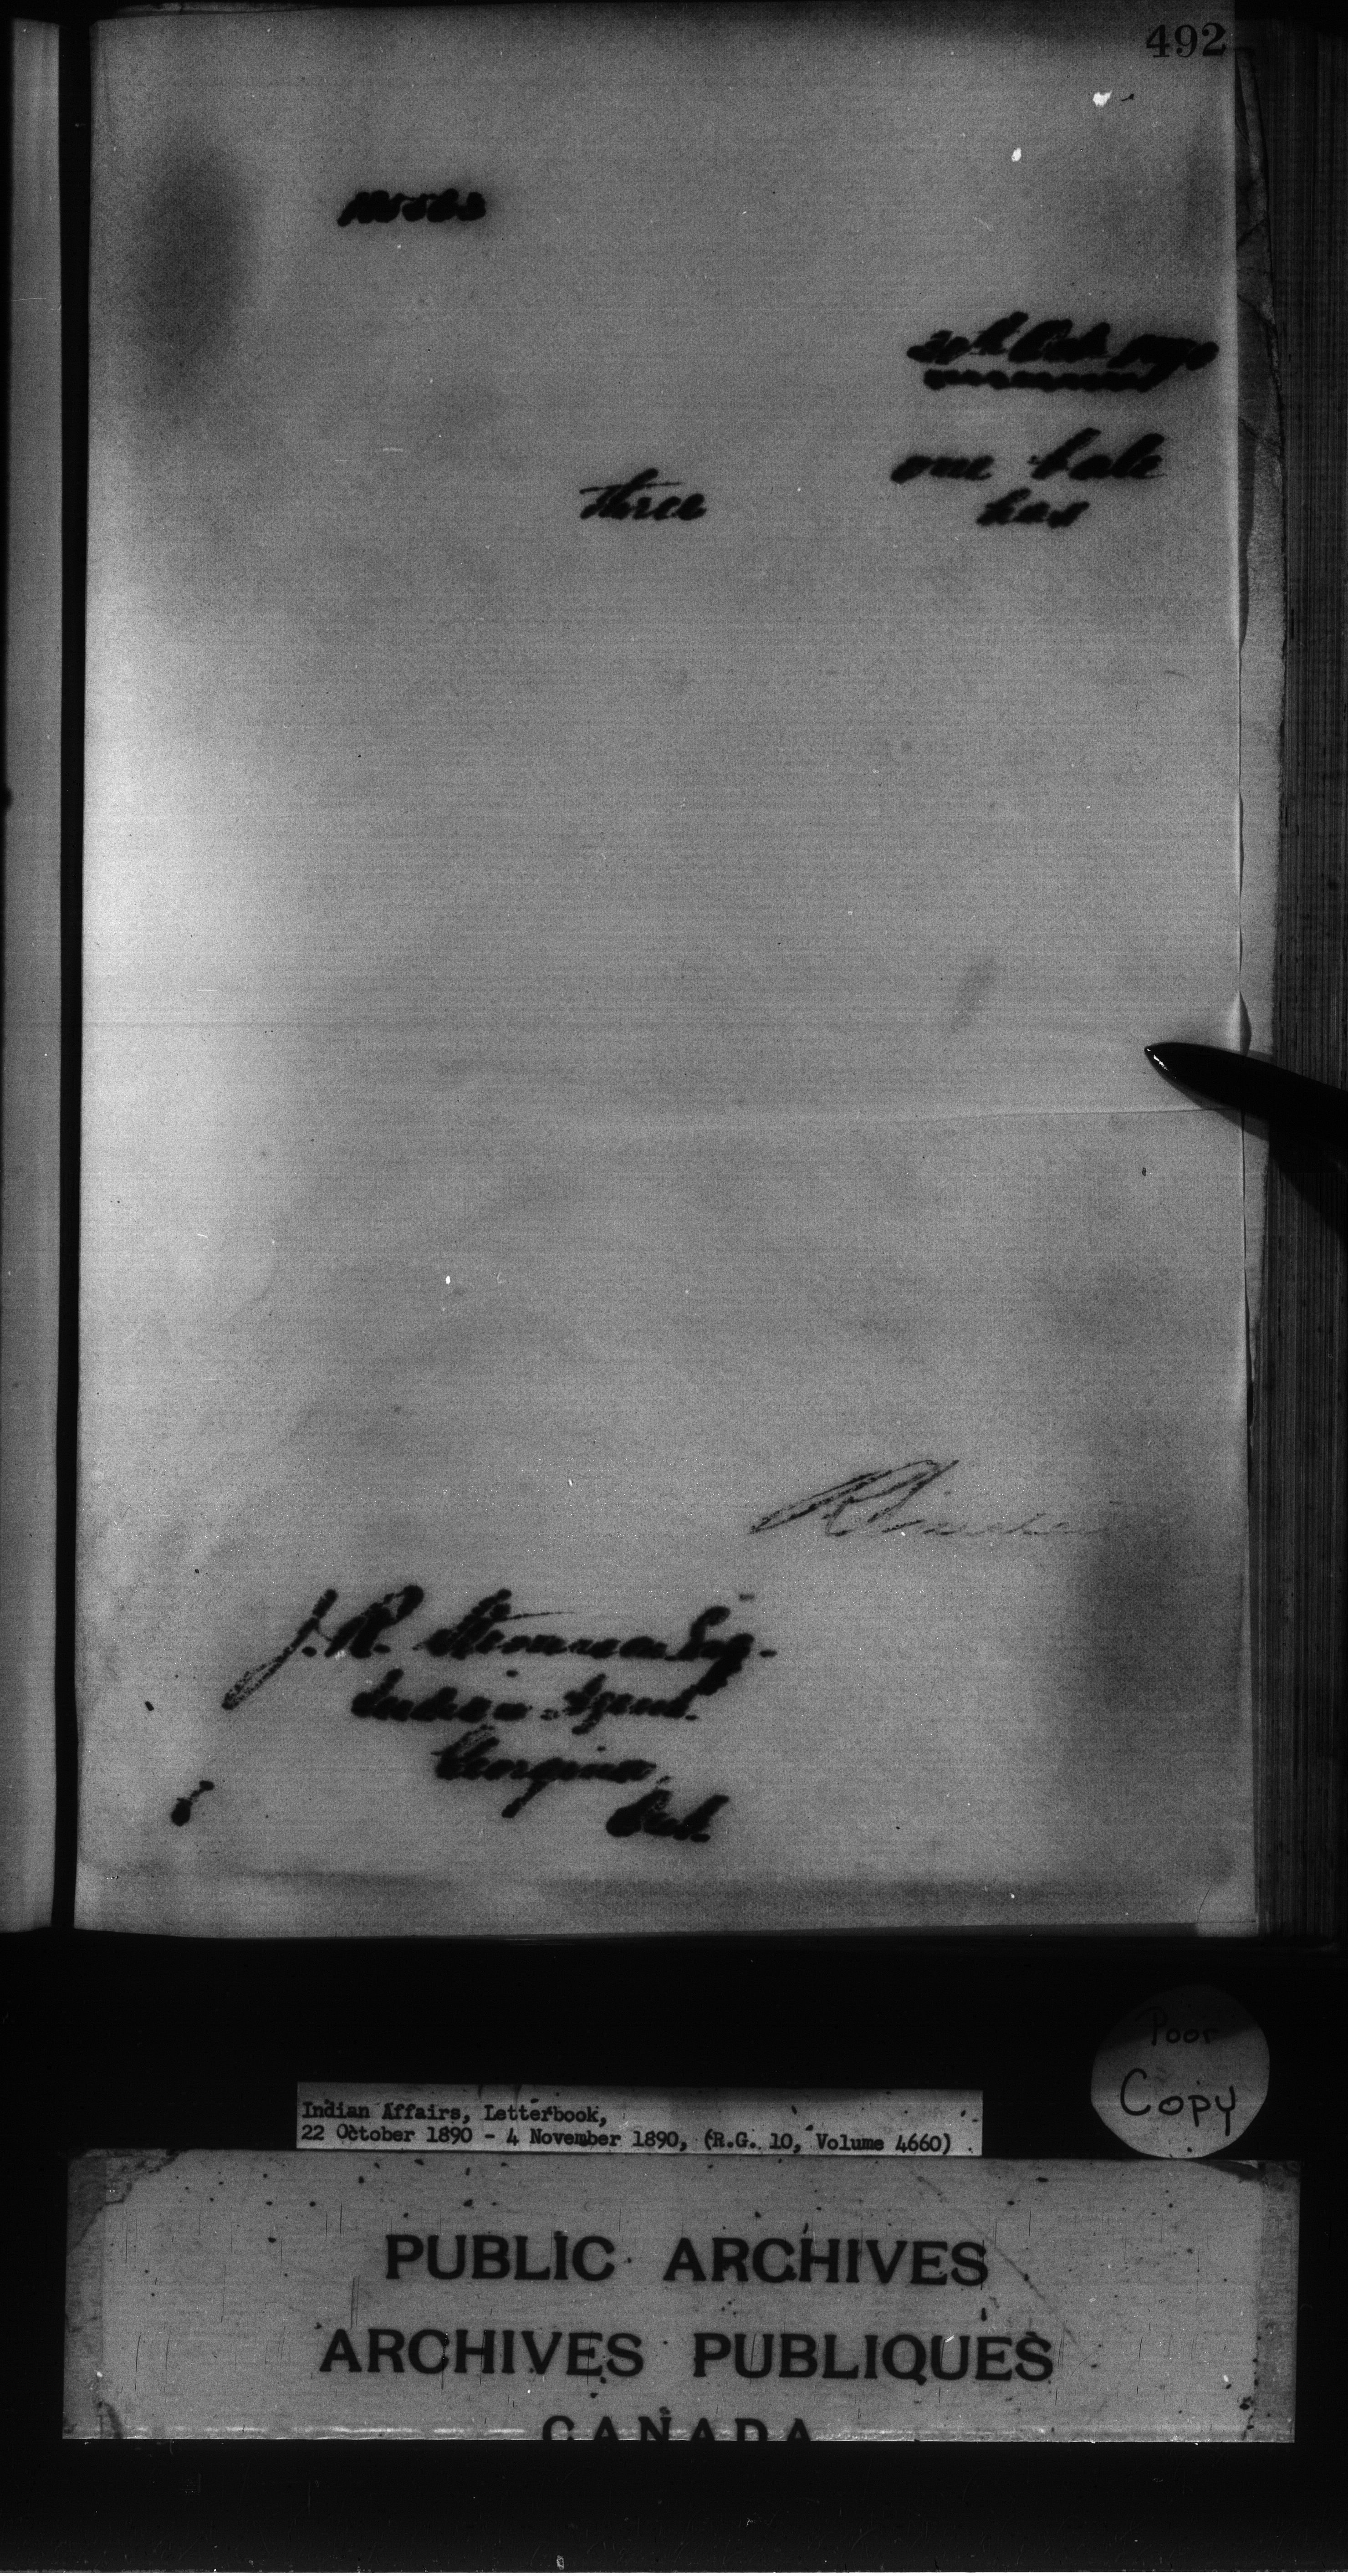 492
30th Oct. 1890
one bale
three has
J. R. Stevenson Esq.
Indian Agent.
Georgina,
Ont.
Poor
Copy
Indian Affairs, Letterbook,
22 October 1890 - 4 November 1890, (R.G. 10, Volume 4660)
PUBLIC ARCHIVES
ARCHIVES PUBLIQUES
CANADA